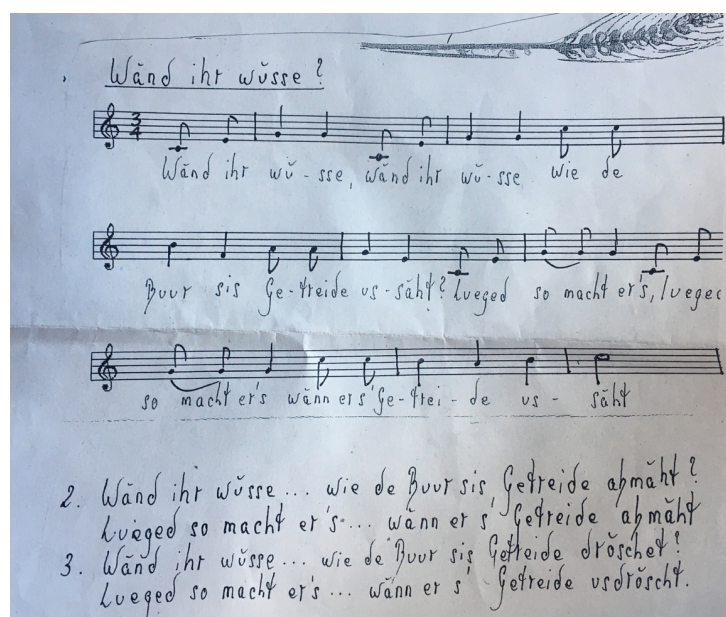 Wänd ihr wüsse?
3
4
Wänd ihr wü-sse, wänd ihr wü-sse wie de
Buur sis Ge-treide us-säht? Lueged so macht er's, lueged
so macht er's wänn ers'Ge-trei-de us-säht
2. Wänd ihr wüsse... wie de Buur sis Getreide abmäht?
Lueged so macht er's... wänn er s' Getreide abmäht
3. Wänd ihr wüsse... wie de Buur sis Getreide dröschet?
Lueged so macht er's... wänn er s' Getreide usdröscht.